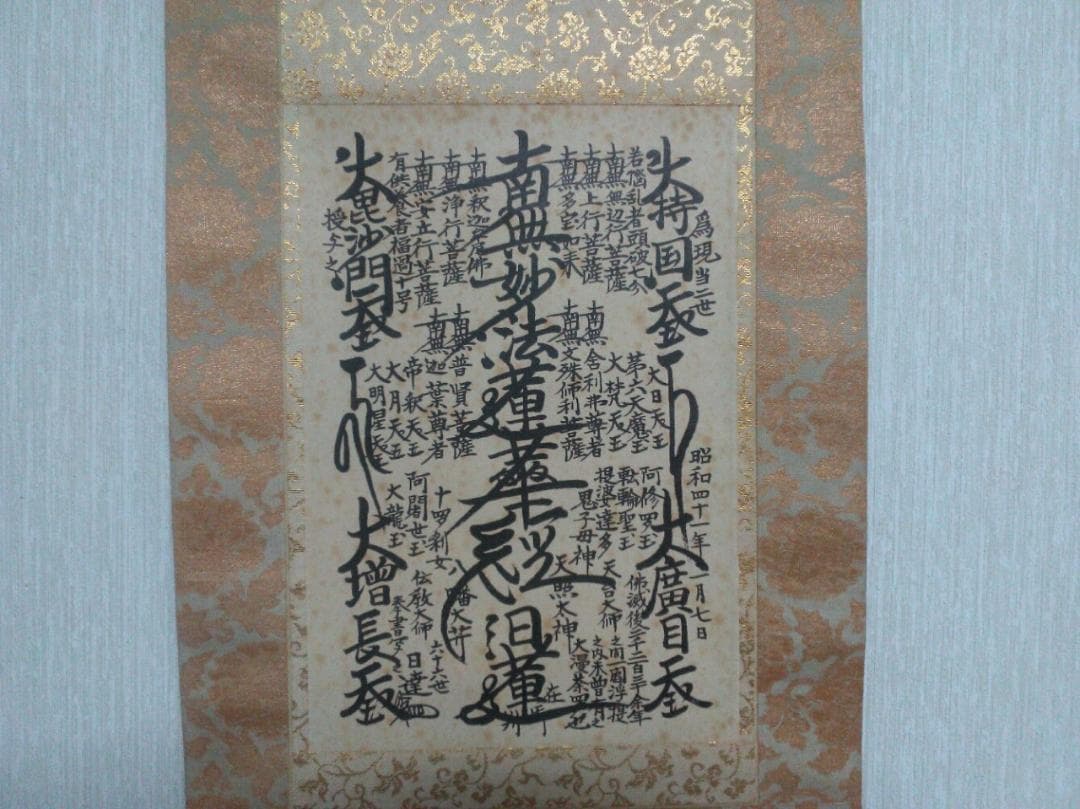 為現当二世
大持国天王
大廣目天王
昭和四十一年一月七日
若悩乱者頭破七分
南無無辺行菩薩
南無上行菩薩
南無多宝如来
南無妙法蓮華経日蓮
在
南無釈迦牟尼佛
南無浄行菩薩
南無安立行菩薩
有供養者福過十号
大毘沙門天王
授与之
大増長天王
大日天王
第六天魔王
大梵天王
南無舎利弗尊者
南無文殊師利菩薩
南無普賢菩薩
南無迦葉尊者
帝釈天王
大月天王
大明星天王
阿修羅王
転輪聖王
提婆達多
鬼子母神
十羅刹女
阿闍世王
大龍王
天台大師
天照太神
八幡大菩薩
伝教大師
佛滅後二千二百三十余年
之間一閻浮提
之内未曾有之
大漫荼羅也
六十六世
日達
奉書写之